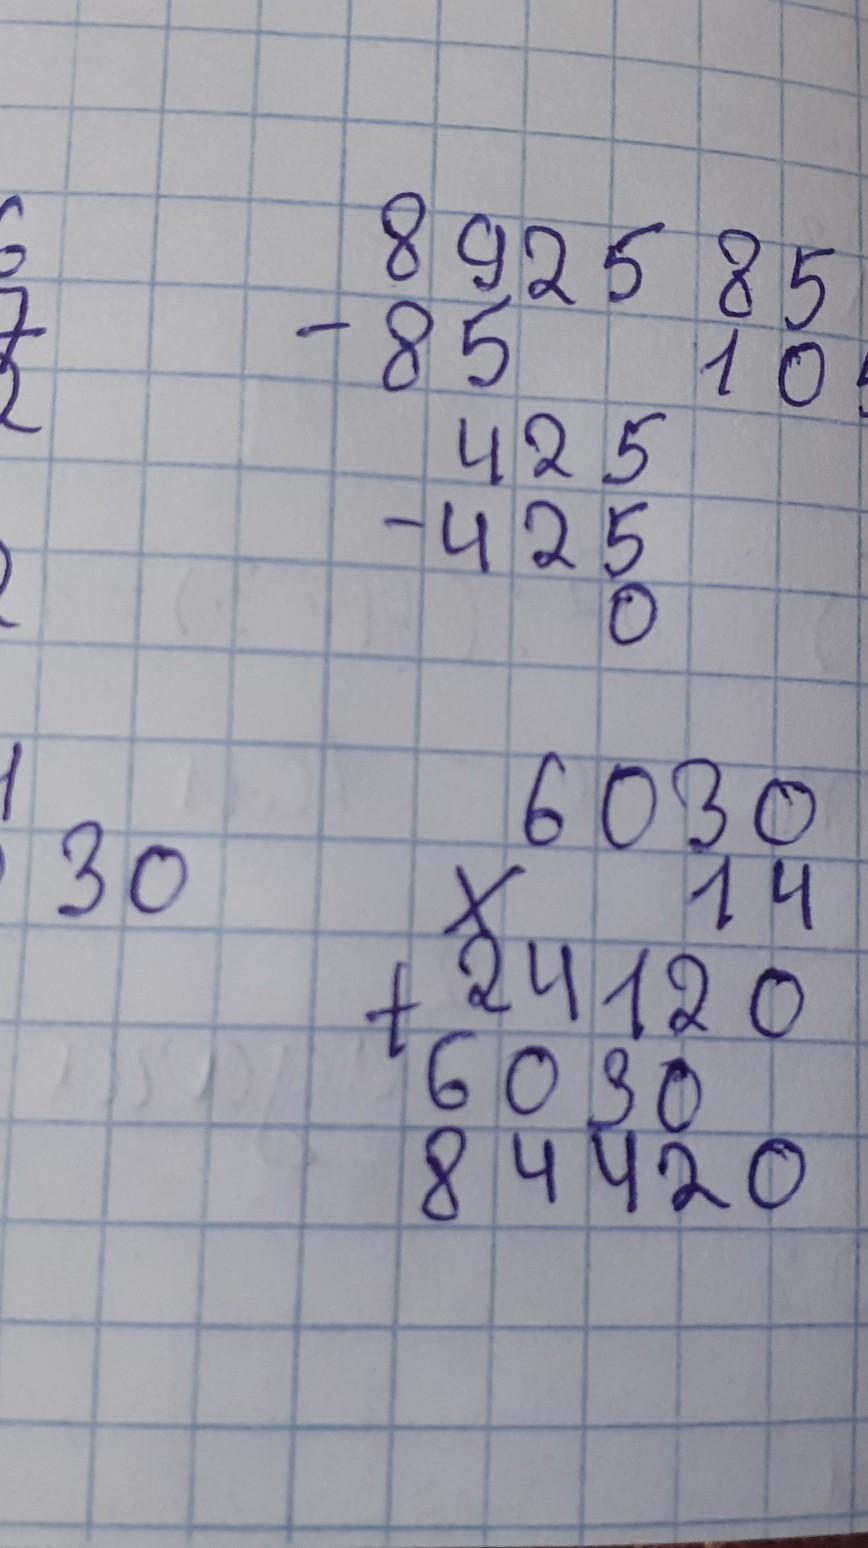 6
7
2
2
1
30
8925 85
- 85 10
425
- 425
0
6030
x 14
+ 24120
6030
84420